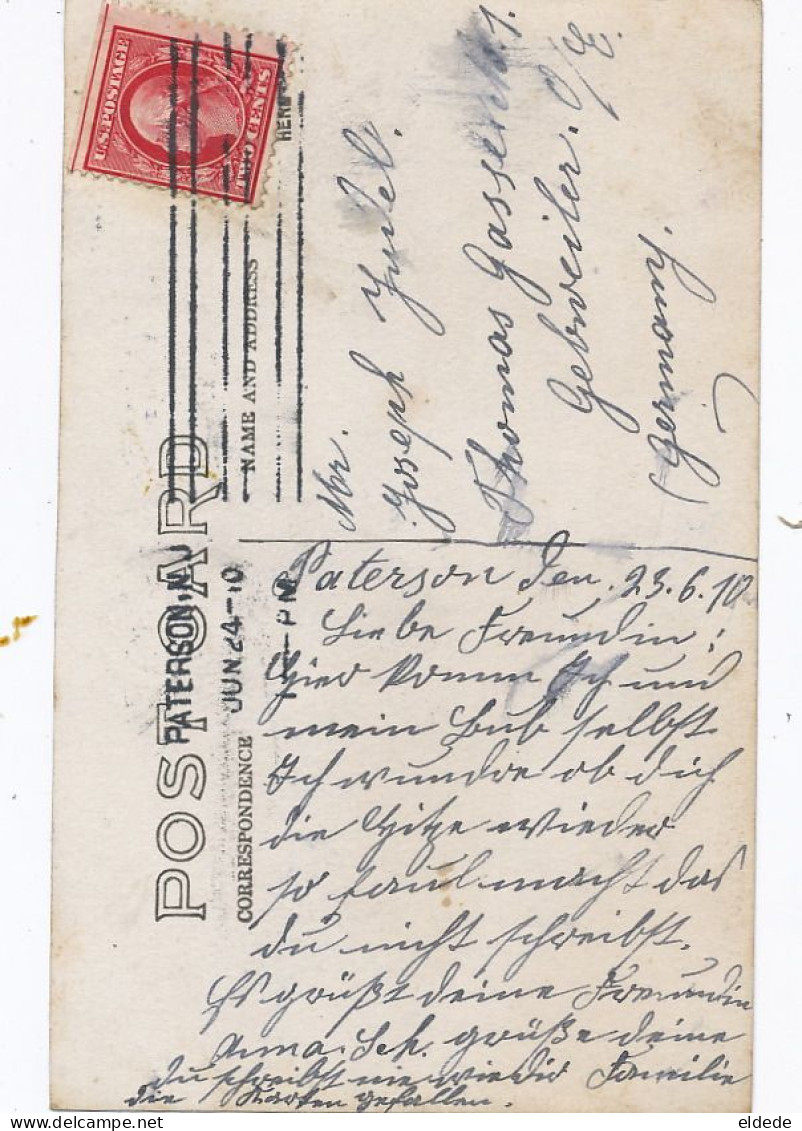 POST CARD
U.S. POSTAGE
TWO CENTS
PATERSON, N.J.
JUN 24-10
PM
NAME AND ADDRESS
CORRESPONDENCE
Mr.
Joseph
Thomas Gassen No. 1.
Gebweiler. O/E.
Germany.
Paterson den. 23.6.10
Liebe Freundin:
Hier komm Ich und
mein Bub selbst
Ich wundre ob dich
die Hitze wieder
so faul macht das
du nicht schreibst.
Es grüßt deine Freundin
Anna. Sch. grüße deine
Familie
du schreibst nie wie dir
die Karten gefallen.
eldede